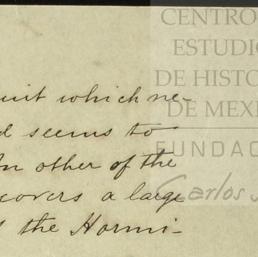 CENTRO
ESTUDIO
DE HISTO
DE MEXI
FUNDAC
Carlos
uit which ne-
d seems to
In other of the
covers a large
the Hormi-